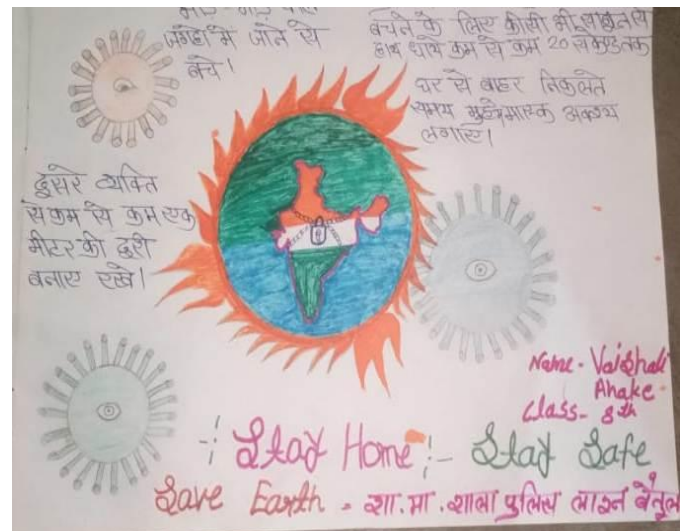 जगहों में जाने से
बचे।
बचने के लिए कीसी भी साबुन से
हाथ धोये कम से कम 20 सेकेंड तक
घर से बाहर निकलते
समय मुँह मास्क अवश्य
लगाए।
दुसरे व्यक्ति
से कम से कम एक
मीटर की दुरी
बनाए रखे।
Name - Vaishali
Ahake
Class - 8th
Stay Home :- Stay Safe
Save Earth - शा. मा. शाला पुलिस लाइन बैतूल